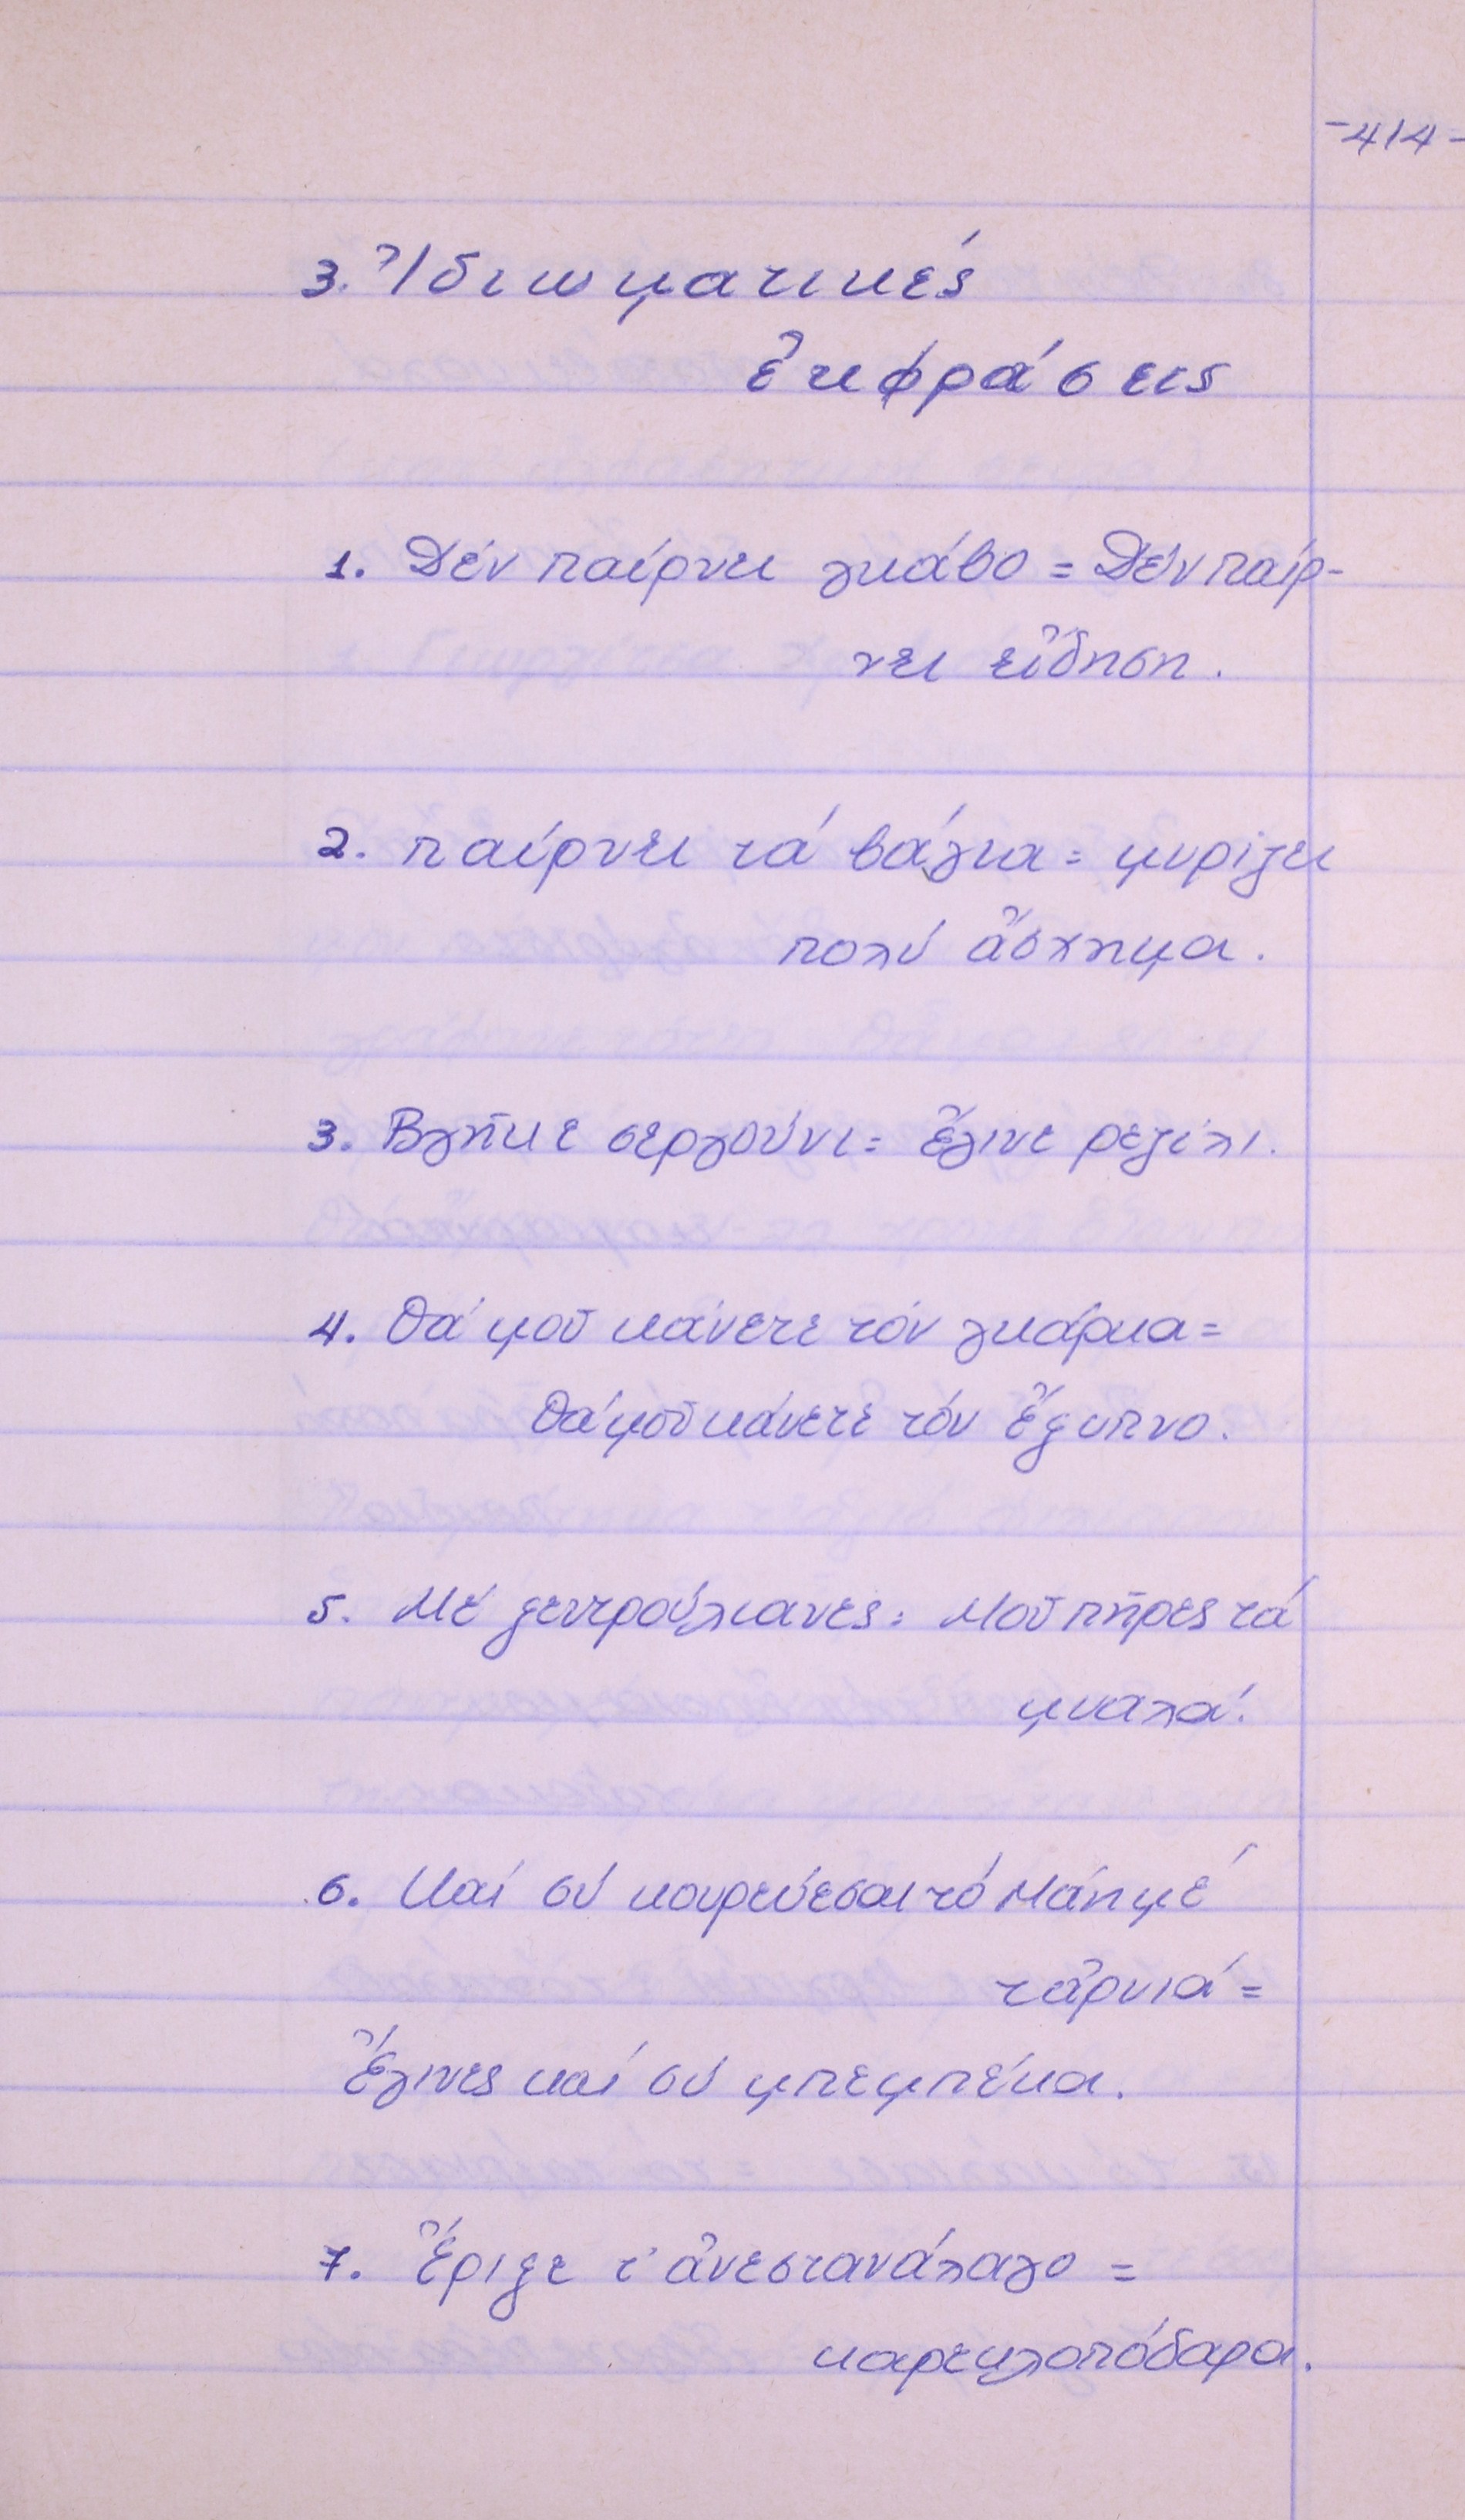 -414-
3. Ἰδιωματικές
ἐκφράσεις
1. Δέν παίρνει γκάβο = Δέν παίρ-
νει εἴδηση.
2. παίρνει τά βάγια = μυρίζει
πολύ ἄσχημα.
3. Βγῆκε σεργούνι = ἔγινε ρεζίλι.
4. Θά μοῦ κάνετε τόν γκάρκα =
Θά μοῦ κάνετε τόν ἔξυπνο.
5. Μέ ξεντρούλιανες = Μοῦ πῆρες τά
μυαλά.
6. Καί σύ κουρεύεσαι τό Μάη μέ
τἀρνιά =
Ἔγινες καί σύ μπεμπέκα.
7. Ἔριξε τ' ἀνεστανάλαγο =
καρεκλοπόδαρα.